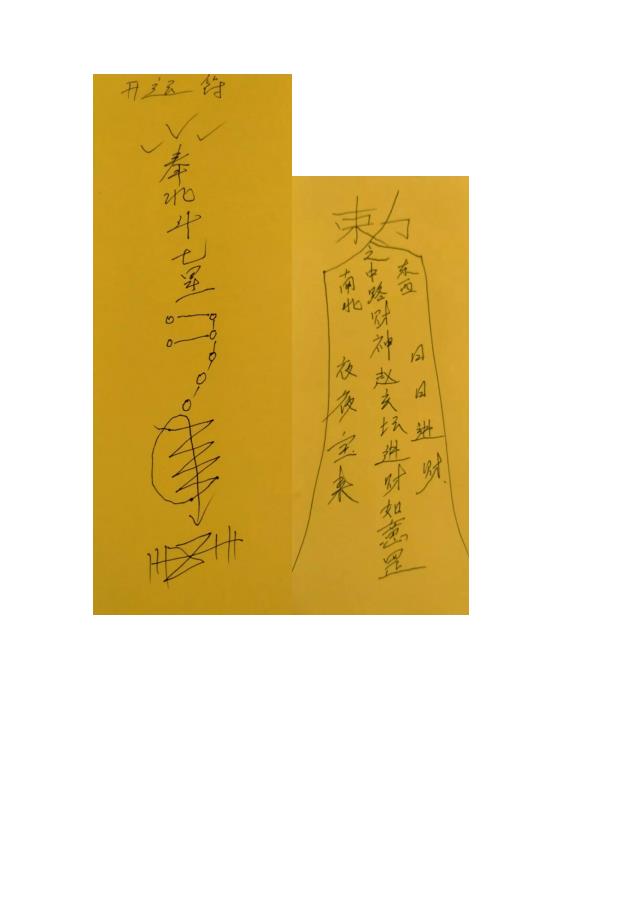 开运符
奉北斗七星
敕
之中路财神赵玄坛进财如意罡
东西
日日进财
南北
夜夜宝来